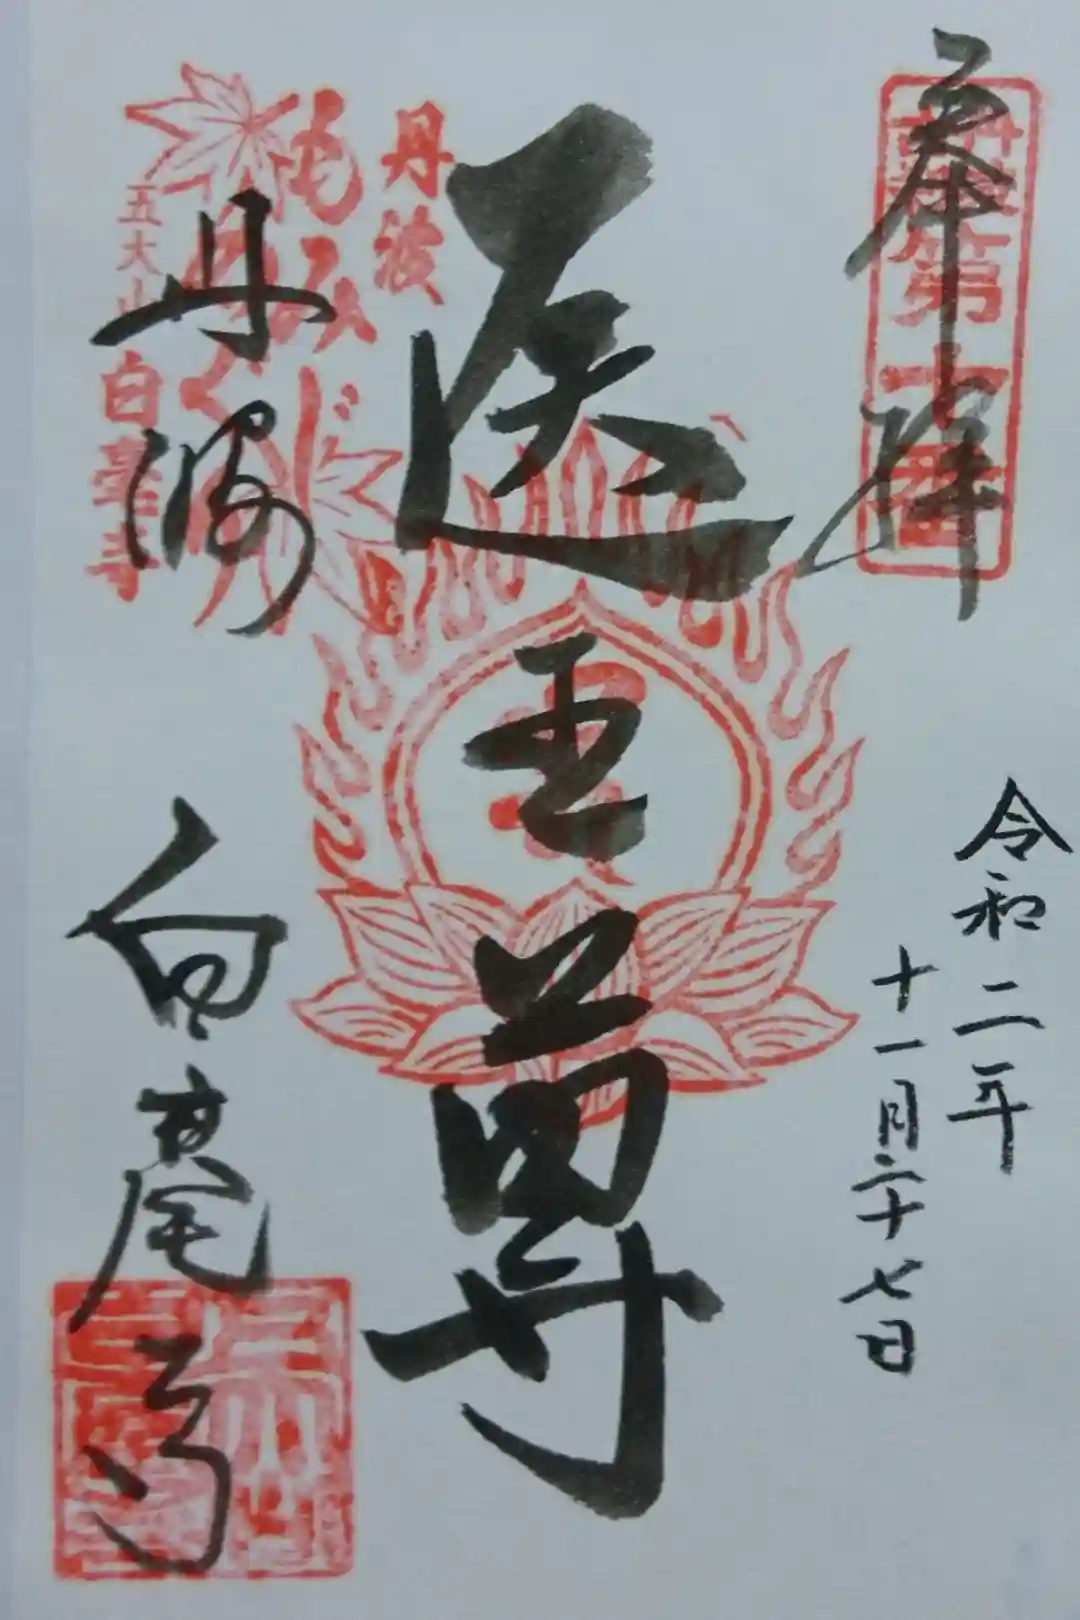 奉拝
第十番
令和二年
十一月二十七日
医王尊
丹波
もみじ
めぐり
五大山
白毫寺
丹波
白毫寺